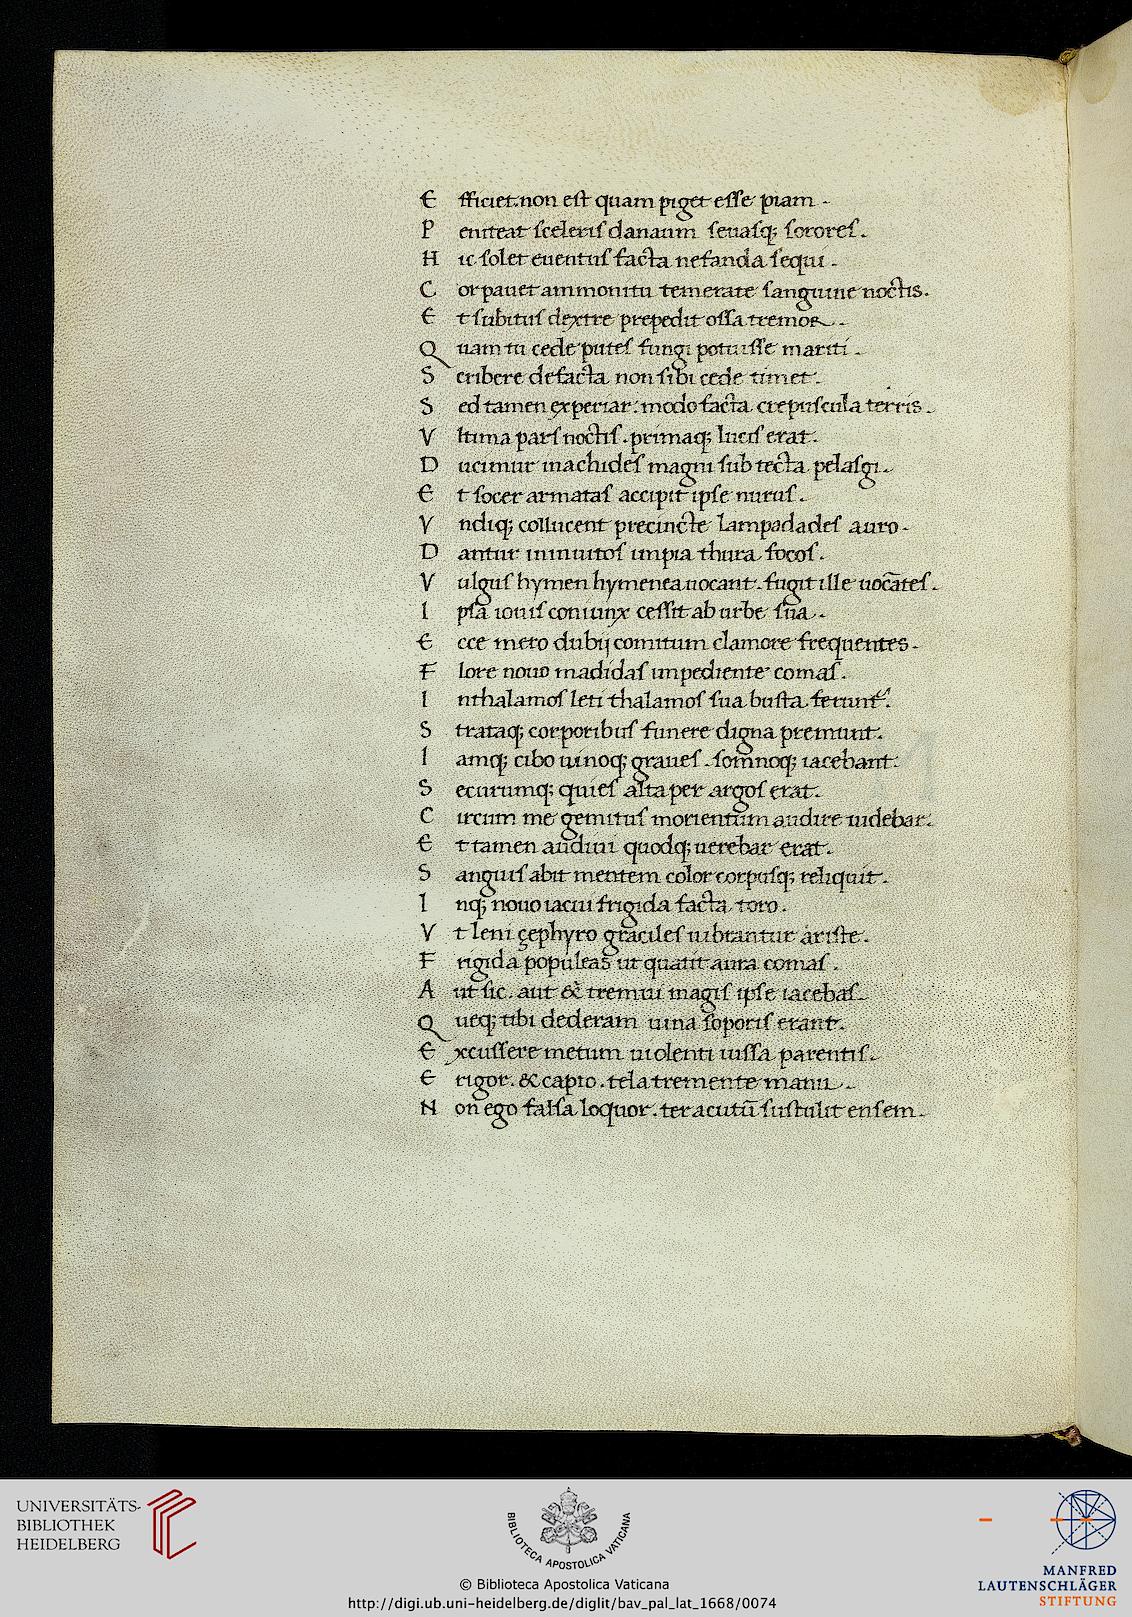 E fficiet. non est quam piget esse piam .
P eniteat sceleris danaum seuasq; sorores .
H ic solet euentus facta nefanda sequi .
C or pauet ammonitu temerate sanguine noctis .
E t subitus dextre prepedit ossa tremor .
Q uam tu cede putes fungi potuisse mariti .
S cribere de facta non sibi cede timet .
S ed tamen experiar : modo facta crepuscula terris .
V ltima pars noctis . primaq; lucis erat .
D ucimur inachides magni sub tecta pelasgi .
E t socer armatas accipit ipse nurus .
V ndiq; collucent precincte lampadades auro .
D antur in inuitos impia thura focos .
V ulgus hymen hymenea uocant . fugit ille uocātes .
I psa iouis coniunx cessit ab urbe sua .
E cce mero dubij comitum clamore frequentes .
F lore nouo madidas impediente comas .
I n thalamos leti thalamos sua busta ferunt .
S trataq; corporibus funere digna premunt .
I amq; cibo uinoq; graues . somnoq; iacebant .
S ecurumq; quies alta per argos erat .
C ircum me gemitus morientum audire uidebar .
E t tamen audiui quodq; uerebar erat .
S anguis abit mentem color corpusq; reliquit .
I nq; nouo iacui frigida facta toro .
V t leni zephyro graciles uibrantur ariste .
F rigida populeas ut quatit aura comas .
A ut sic . aut & tremui magis ipse iacebas .
Q ueq; tibi dederam uina soporis erant .
E xcussere metum uiolenti iussa parentis .
E rigor . & capio . tela tremente manu .
N on ego falsa loquor . ter acutū sustulit ensem .
UNIVERSITÄTS-
BIBLIOTHEK
HEIDELBERG
BIBLIOTECA APOSTOLICA VATICANA
MANFRED
LAUTENSCHLÄGER
STIFTUNG
© Biblioteca Apostolica Vaticana
http://digi.ub.uni-heidelberg.de/diglit/bav_pal_lat_1668/0074